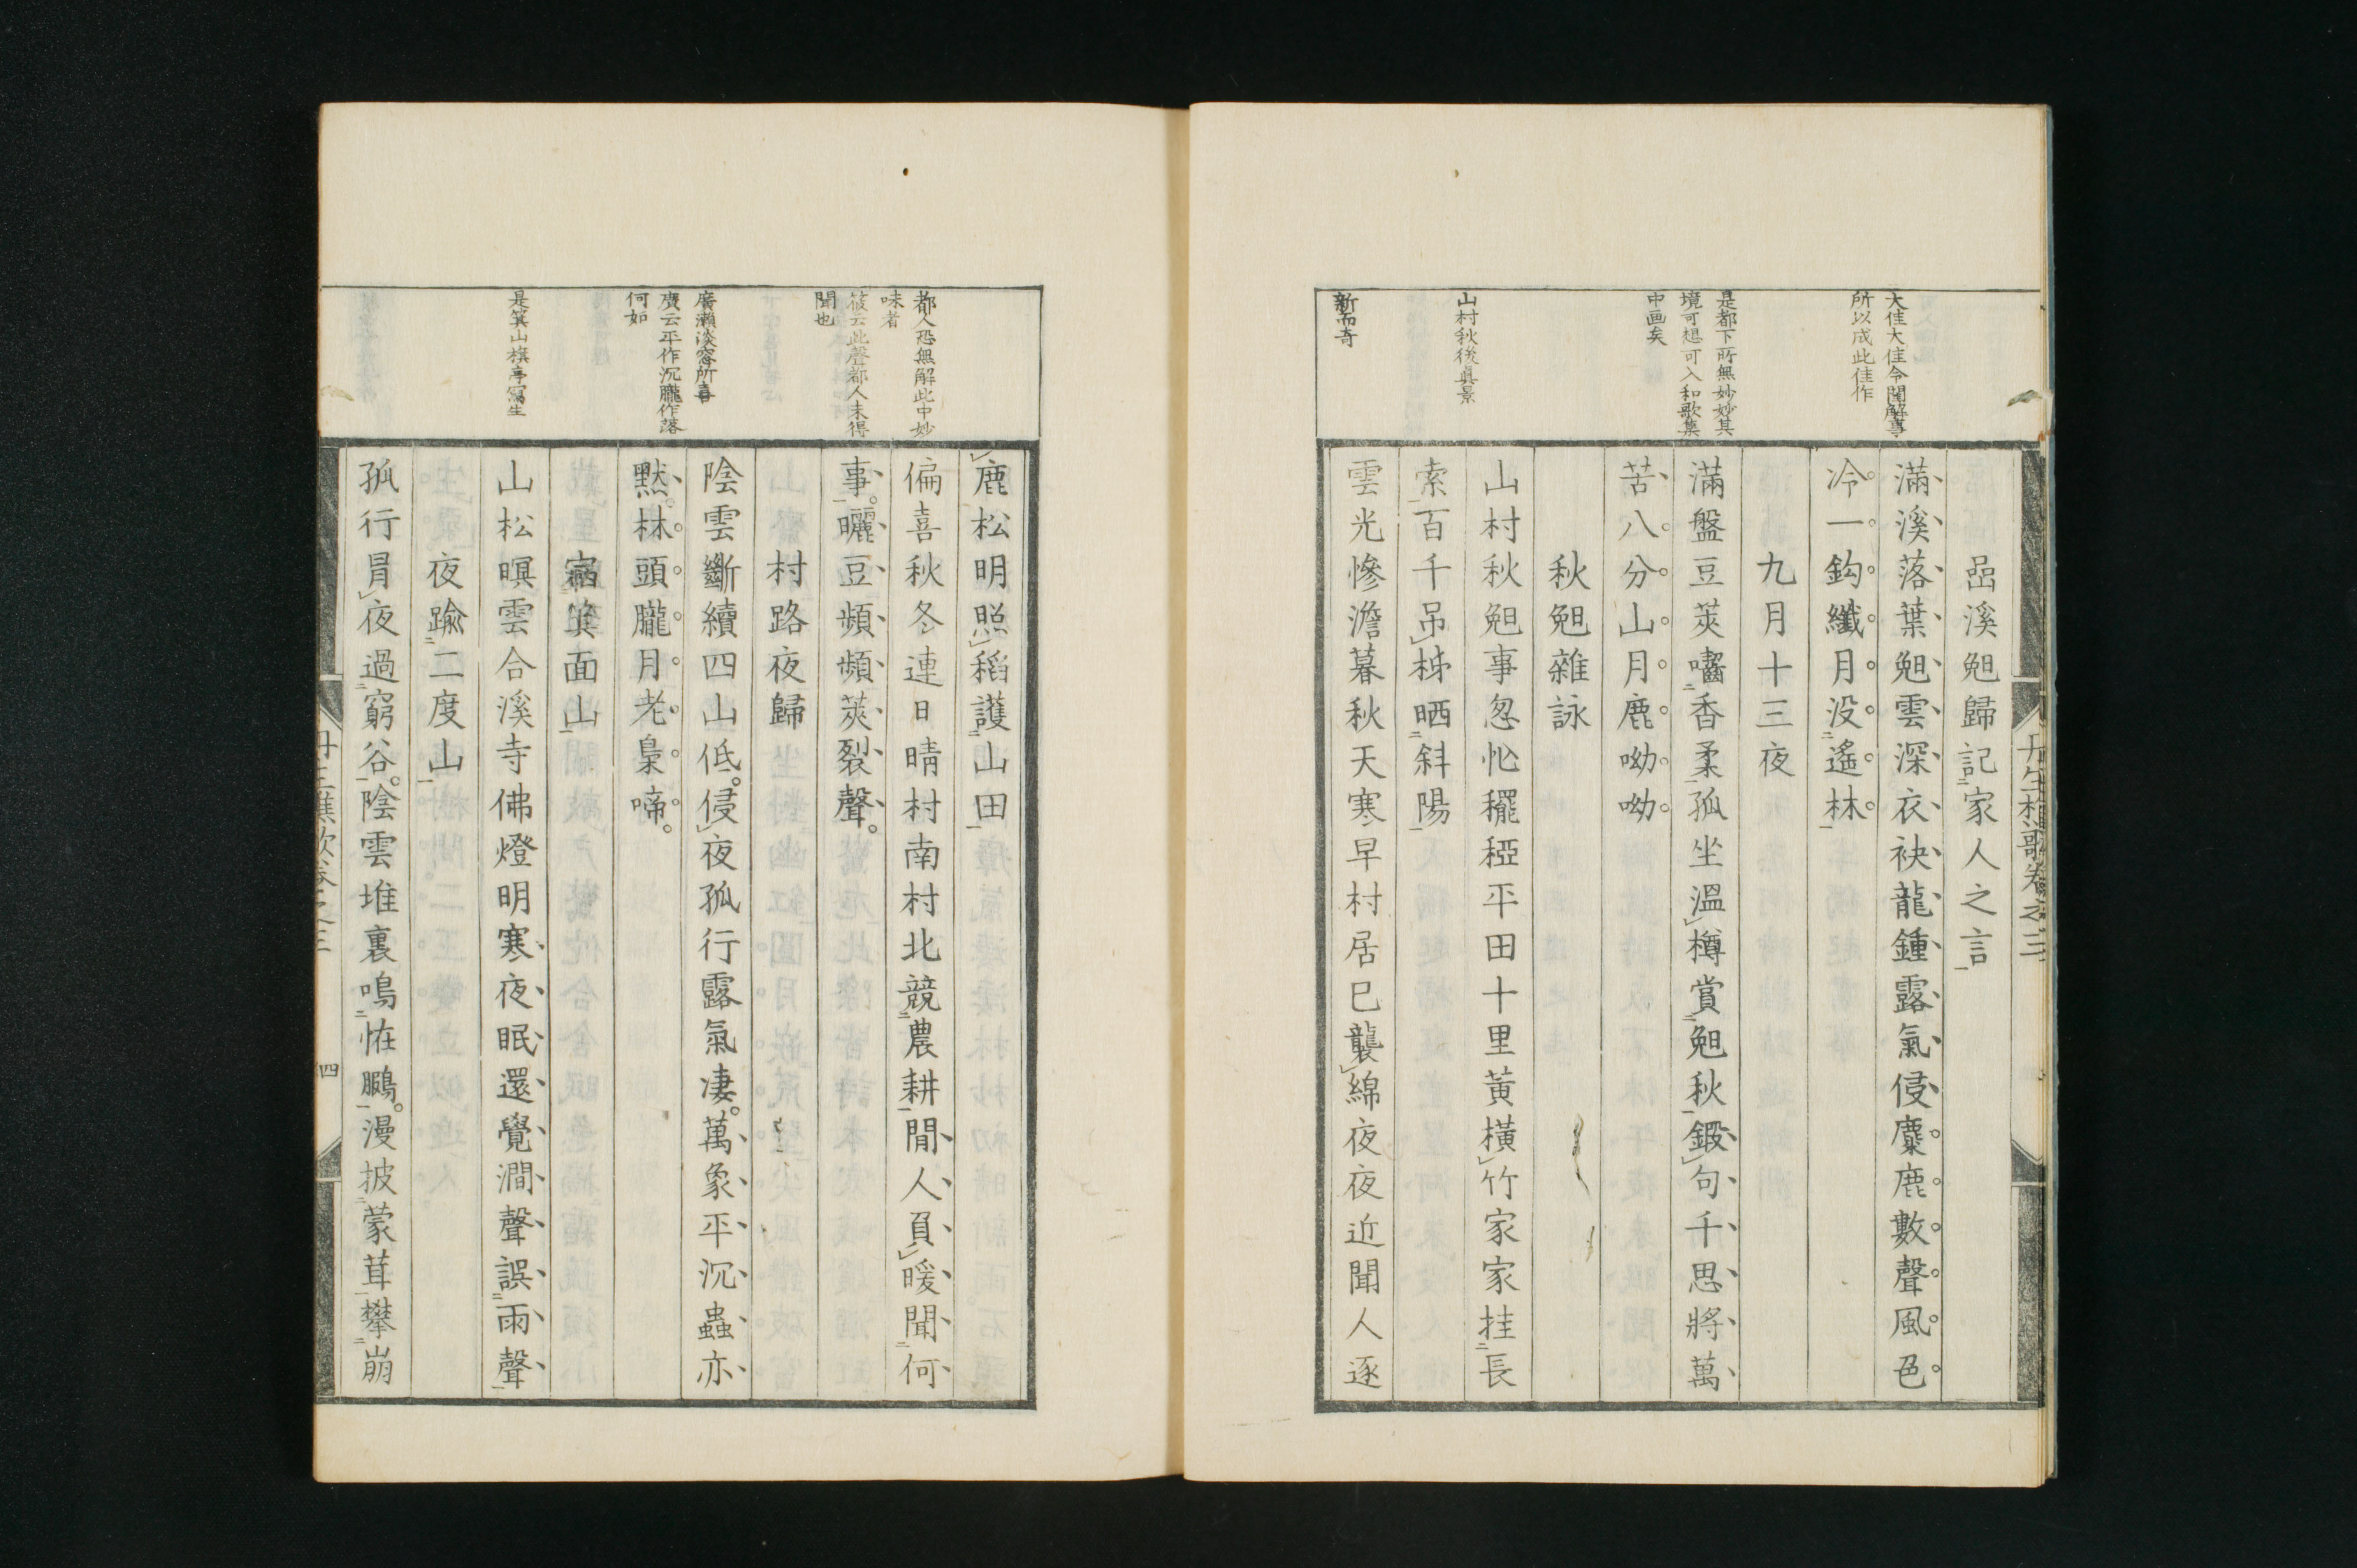 大佳大佳令閨解事
所以成此佳作
是都下所無妙妙其
境可想可入和歌集
中画矣
山村秋後眞景
新而奇
嵒溪晚歸記家人之言
滿溪落葉晚雲深衣袂龍鍾露氣侵麋鹿數聲風色
冷一鈎纖月没遙林
九月十三夜
滿盤豆莢嚙香柔孤坐溫樽賞晚秋鍛句千思將萬
苦八分山月鹿呦呦
秋晚雜詠
山村秋晚事忽忙䆉稏平田十里黃橫竹家家挂長
索百千吊柹晒斜陽
雲光慘澹暮秋天寒早村居已襲綿夜夜近聞人逐
都人恐無解此中妙
味者
筱云此聲都人未得
聞也
廣瀨淡窓所喜
廣云平作沉朧作落
何如
是箕山旗亭寫生
鹿松明照稻護山田
偏喜秋冬連日晴村南村北競農耕閒人負暖聞何
事曬豆頻頻莢裂聲
村路夜歸
陰雲斷續四山低侵夜孤行露氣凄萬象平沉蟲亦
默林頭朧月老梟啼
宿箕面山
山松暝雲合溪寺佛燈明寒夜眠還覺澗聲誤雨聲
夜踰二度山
孤行冐夜過窮谷陰雲堆裏鳴恠鵩漫披蒙茸攀崩
四